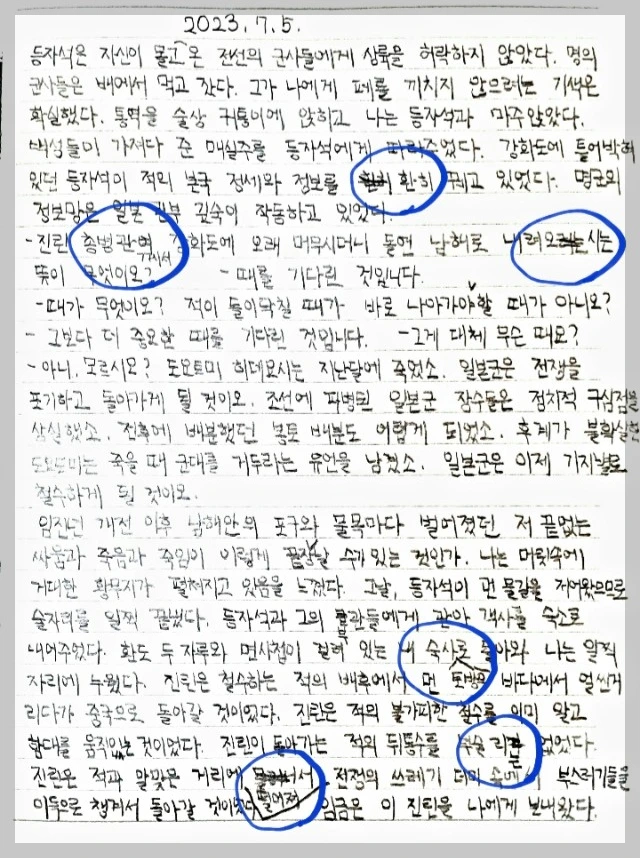 2023. 7. 5.
등자석은 자신이 몰고 온 전선의 군사들에게 상륙을 허락하지 않았다. 명의
군사들은 배에서 먹고 잤다. 그가 나에게 폐를 끼치지 않으려는 기색은
확실했다. 통역을 술상 귀퉁이에 앉히고 나는 등자석과 마주앉았다.
백성들이 가져다 준 매실주를 등자석에게 따라주었다. 강화도에 틀어박혀
있던 등자석이 적의 본국 정세와 정보를 환히 꿰고 있었다. 명군의
정보망은 일본 관부 깊숙이 작동하고 있었다.
- 진린 총병관께서 강화도에 오래 머무시더니 돌연 남해로 내려오시는
뜻이 무엇이오? - 때를 기다린 것입니다.
- 때가 무엇이오? 적이 들이닥칠 때가 바로 나아가야할 때가 아니오?
- 그보다 더 중요한 때를 기다린 것입니다. - 그게 대체 무슨 때요?
- 아니, 모르시오? 도요토미 히데요시는 지난달에 죽었소. 일본군은 전쟁을
포기하고 돌아가게 될 것이오. 조선에 파병된 일본군 장수들은 정치적 구심점을
상실했소. 전후에 배분했던 봉토 배분도 어렵게 되었소. 후계가 불확실한
도요토미는 죽을 때 군대를 거두라는 유언을 남겼소. 일본군은 이제 기지별로
철수하게 될 것이오.
임진년 개전 이후 남해안의 포구와 물목마다 벌어졌던 저 끝없는
싸움과 죽음과 죽임이 이렇게 끝장날 수가 있는 것인가. 나는 머릿속에
거대한 황무지가 펼쳐지고 있음을 느꼈다. 그날, 등자석이 먼 물길을 저어왔으므로
술자리를 일찍 끝냈다. 등자석과 그의 부관들에게 관아 객사를 숙소로
내어주었다. 환도 두 자루와 면사첩이 걸려 있는 내 숙사로 돌아와 나는 일찍
자리에 누웠다. 진린은 철수하는 적의 배후에서 먼 바다에서 얼씬거
리다가 중국으로 돌아갈 것이었다. 진린은 적의 불가피한 철수를 이미 알고
함대를 움직인 것이었다. 진린이 돌아가는 적의 뒤통수를 없었다.
진린은 적과 알맞은 거리에 떨어져서 전쟁의 쓰레기 더미 속에서 부스러기들을
이득으로 챙겨서 돌아갈 것이었다. 임금은 이 진린을 나에게 보내왔다.